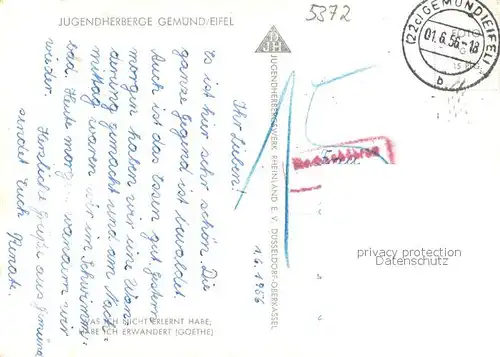 JUGENDHERBERGE GEMÜND/EIFEL
5372
(22c) GEMÜND (EIFEL)
01.6.56-18
b
DJH
JUGENDHERBERGSWERK RHEINLAND E. V. DÜSSELDORF-OBERKASSEL
1.6.1956
Ihr Lieben!
Es ist hier sehr schön. Die
ganze Gegend ist bewaldet.
Auch ist das Essen gut. Gestern
morgen haben wir eine Wan-
derung gemacht und am Nach-
mittag waren wir im Schwimm-
bad. Heute morgen wandern wir
wieder.
Herzliche Grüße aus Gemünd
sendet Euch Renate.
15
Nachgebühr
WAS ICH NICHT ERLERNT HABE,
HABE ICH ERWANDERT (GOETHE)
privacy protection
watermark